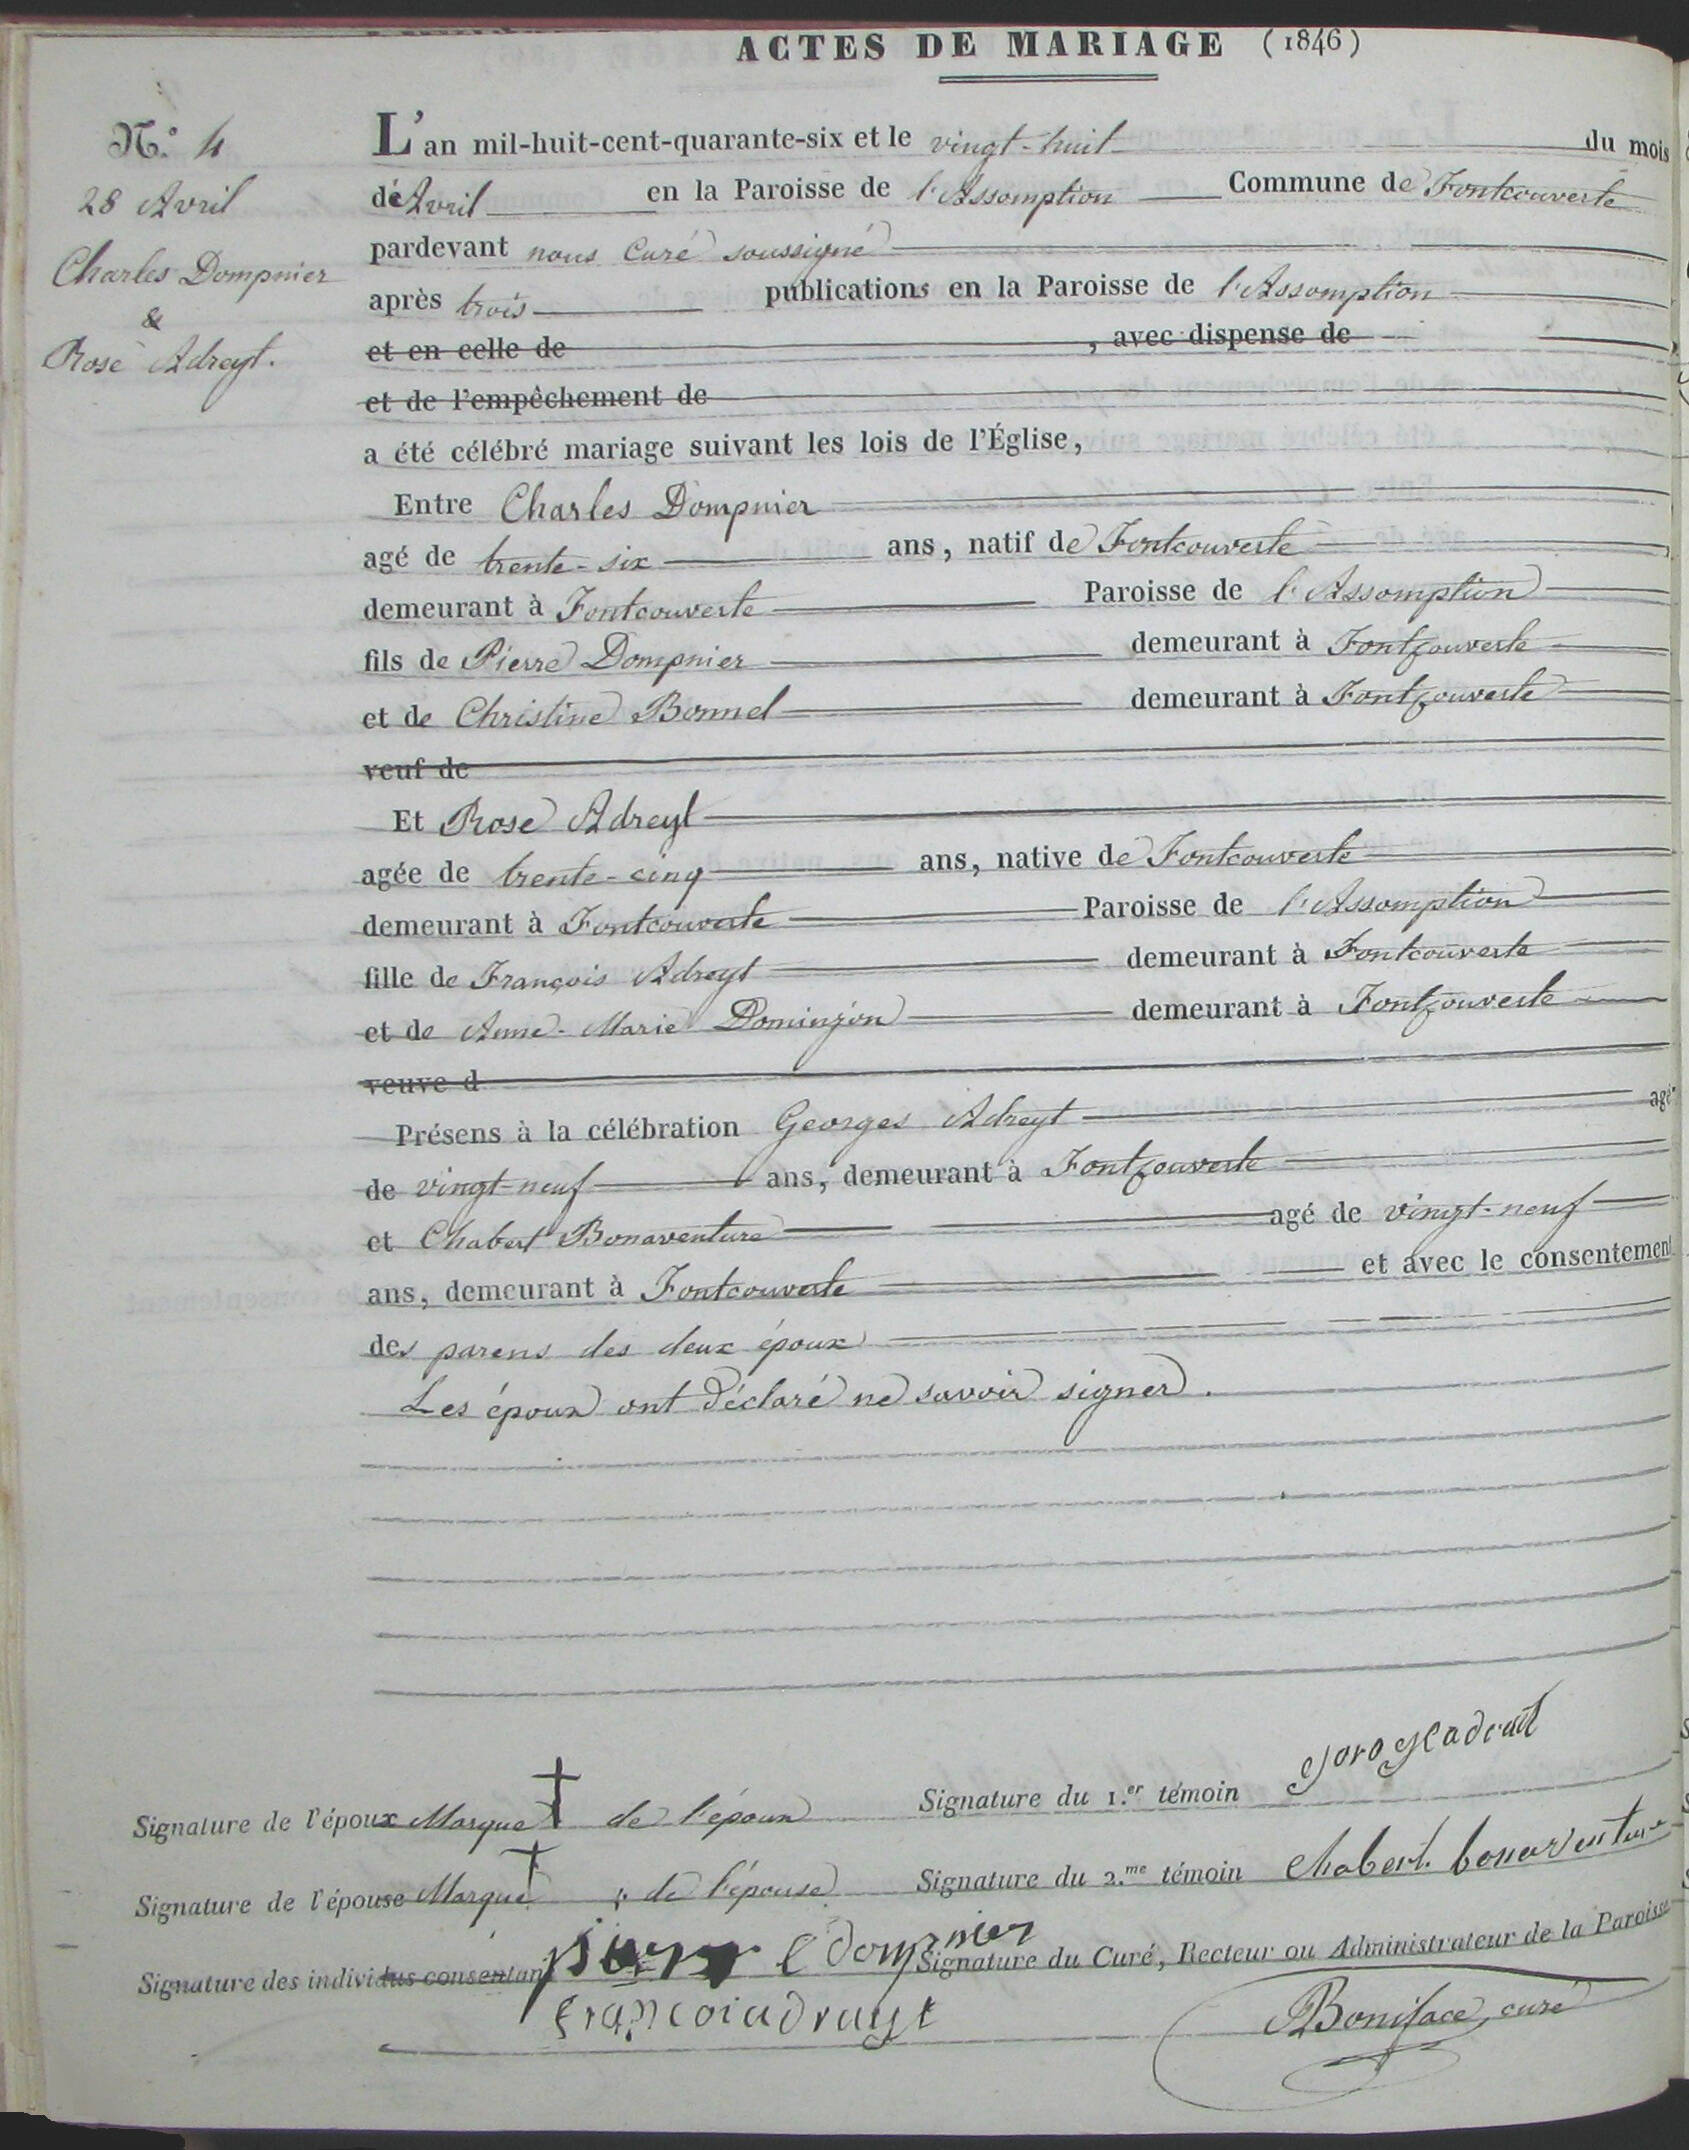 ACTES DE MARIAGE (1846)
N.° 4
28 Avril
Charles Dompnier
&
Rose Adreyt.
L'an mil-huit-cent-quarante-six et le vingt-huit du mois
de Avril en la Paroisse de l'Assomption Commune de Fontcouverte
pardevant nous Curé soussigné
après trois publications en la Paroisse de l'Assomption
et en celle de , avec dispense de
et de l'empêchement de
a été célébré mariage suivant les lois de l'Église,
Entre Charles Dompnier
agé de trente-six ans, natif de Fontcouverte
demeurant à Fontcouverte Paroisse de l'Assomption
fils de Pierre Dompnier demeurant à Fontcouverte
et de Christine Bonnel demeurant à Fontcouverte
veuf de
Et Rose Adreyt
agée de trente-cinq ans, native de Fontcouverte
demeurant à Fontcouverte Paroisse de l'Assomption
fille de François Adreyt demeurant à Fontcouverte
et de Anne-Marie Dominjon demeurant à Fontcouverte
veuve d
Présens à la célébration Georges Adreyt agé
de vingt-neuf ans, demeurant à Fontcouverte
et Chabert Bonaventure agé de vingt-neuf
ans, demeurant à Fontcouverte et avec le consentement
des parens des deux époux
Les époux ont déclaré ne savoir signer.
Signature de l'époux Marque de l'époux Signature du 1.er témoin
Signature de l'épouse Marque de l'épouse Signature du 2.me témoin Chabert bonaventure
Signature des individus consentan dompnier Signature du Curé, Recteur ou Administrateur de la Paroisse
francoi adrayt Boniface, curé